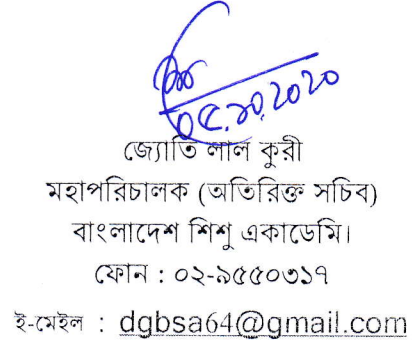 ০৫.১০.২০২০
জ্যোতি লাল কুরী
মহাপরিচালক (অতিরিক্ত সচিব)
বাংলাদেশ শিশু একাডেমি।
ফোন : ০২-৯৫৫০৩১৭
ই-মেইল : dgbsa64@gmail.com